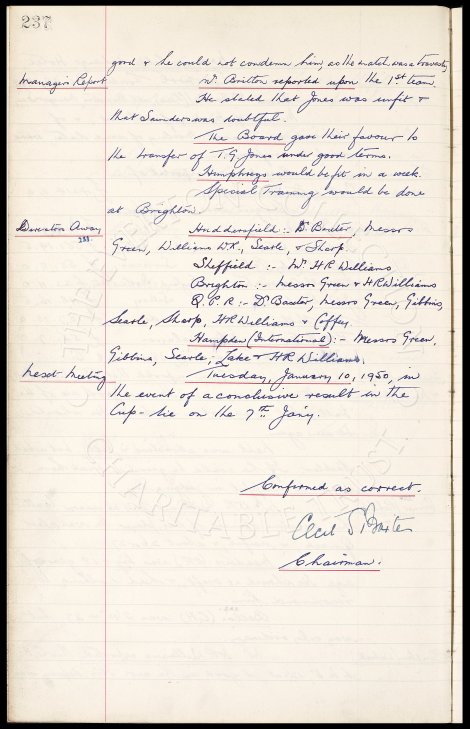 237
good & he could not condemn him, as the match was a travesty
Manager's Report
W. Britton reported upon the 1st team.
He stated that Jones was unfit &
that Saunders was doubtful.
The Board gave their favour to
the transfer of T.G Jones under good terms.
Humphreys would be fit in a week.
Special Training would be done
at Brighton.
Directors Away
Huddersfield :- Dr Baxter, Messrs
Green, Williams W.R., Searle, & Sharp.
Sheffield :- Mr. H R Williams
Brighton :- Messrs Green & H R Williams
Q.P.R :- Dr Baxter, Messrs Green, Gibbins,
Searle, Sharp, H R Williams & Coffey
Hampden (International) :- Messrs Green,
Gibbins, Searle, Lake & H R Williams.
Next Meeting
Tuesday, January 10, 1950, in
the event of a conclusive result in the
Cup-tie on the 7th Jan'y.
Confirmed as correct.
Cecil S Baxter
Chairman.
CHARITABLE